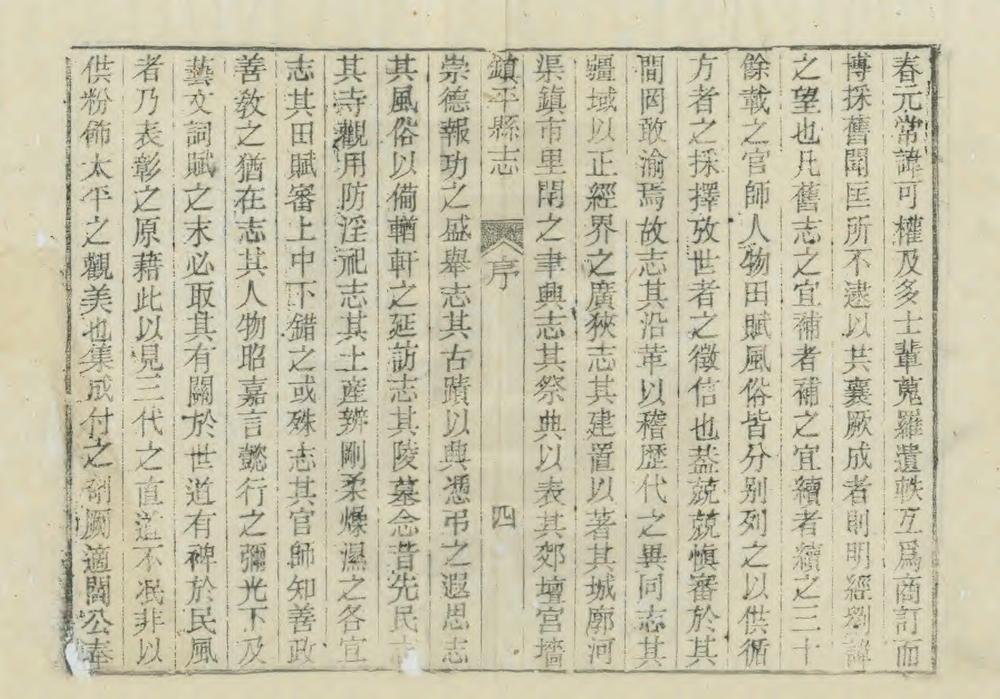 春元常諱可權及多士輩蒐羅遺軼互爲商訂而
博採舊聞匡所不逮以共襄厥成者則明經劉諱
之望也凡舊志之宜補者補之宜續者續之三十
餘載之官師人物田賦風俗皆分别列之以供循
方者之採擇攷世者之徵信也葢兢兢愼審於其
間罔敢渝焉故志其沿革以稽歴代之異同志其
疆域以正經界之廣狹志其建置以著其城廓河
渠鎮市里閈之聿興志其祭典以表其郊壇宫墻
鎮平縣志 序 四
崇德報功之盛舉志其古蹟以興憑弔之遐思志
其風俗以備輶軒之延訪志其陵墓念昔先民志
其寺觀用防淫祀志其土産辨剛柔燥濕之各宜
志其田賦審上中下錯之或殊志其官師知善政
善敎之猶在志其人物昭嘉言懿行之彌光下及
藝文詞賦之末必取其有關於世道有裨於民風
者乃表彰之原藉此以見三代之直道不泯非以
供粉飾太平之觀美也集成付之剞劂適閻公奉